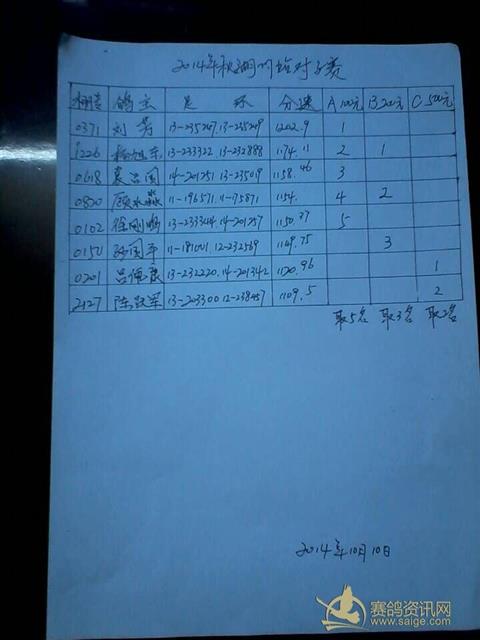 2014年秋湖口站对子赛
棚号 鸽主 足环 分速 A 100元 B 200元 C 500元
0371 刘 13-235207.13-235209 1202.9 1
1226 13-233322 13-232888 1174.11 2 1
0618 国 14-201251 13-235019 1158.46 3
0820 顾水淼 11-196571.11-75871 1154. 4 2
0102 徐刚 13-233344.14-201257 1150.37 5
0150 国平 12-232569 1149.75 3
0201 吕 13-232220.14-201342 1120.96 1
2127 陈 军 13-203300 12-238457 1109.5 2
取5名 取3名 取2名
2014年10月10日
赛鸽资讯网
www.saige.com